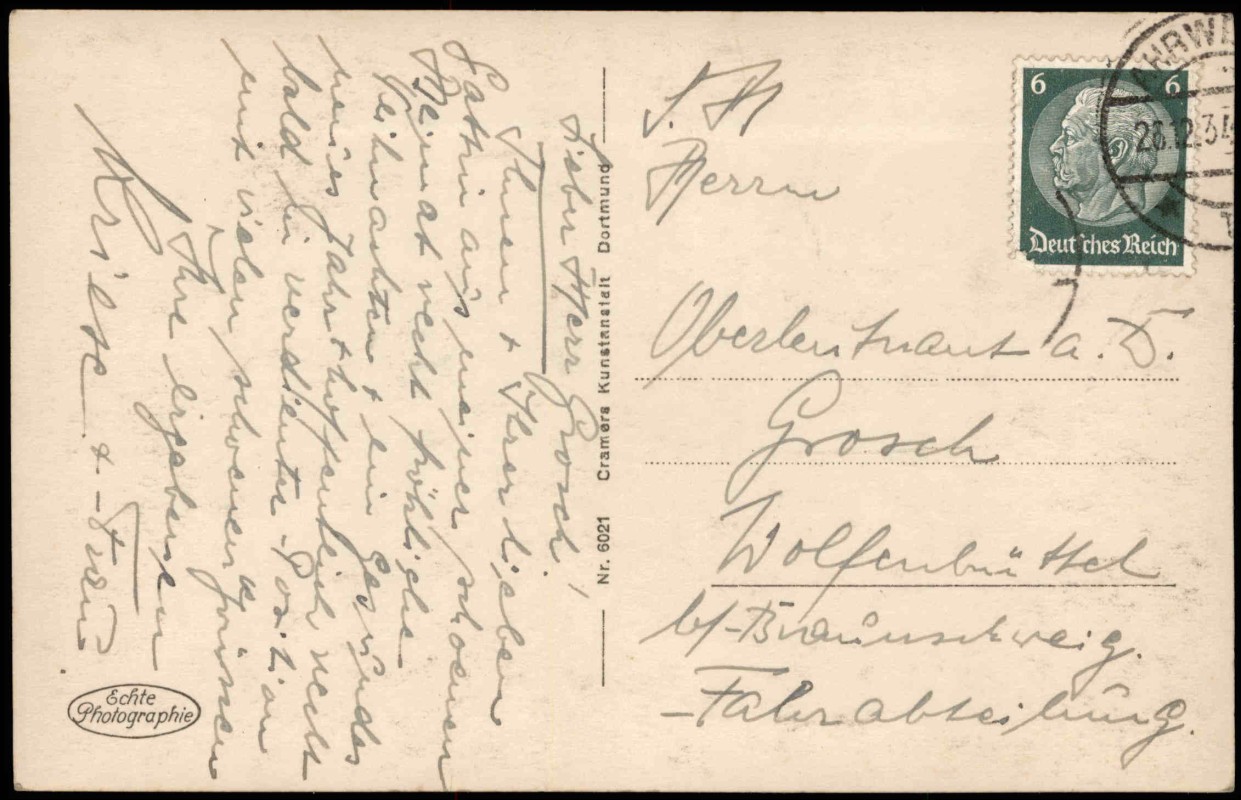 Lieber Herr Grosch!
Ihnen + Ihrer lieben
Gattin aus meiner schoenen
Heimat recht fröhliche
Weihnachten + ein gesundes
neues Jahr + hoffentlich recht
bald in verdienter Position
mit vielen schoenen Grüssen
Ihre ergebenen
+ Frau
Echte
Photographie
Nr. 6021 Cramers Kunstanstalt Dortmund
S. H.
Herrn
Oberleutnant a. D.
Grosch
Wolfenbüttel
b/ Braunschweig.
Fahrabteilung.
6 6
Deutsches Reich
AHRWE
23.12.34